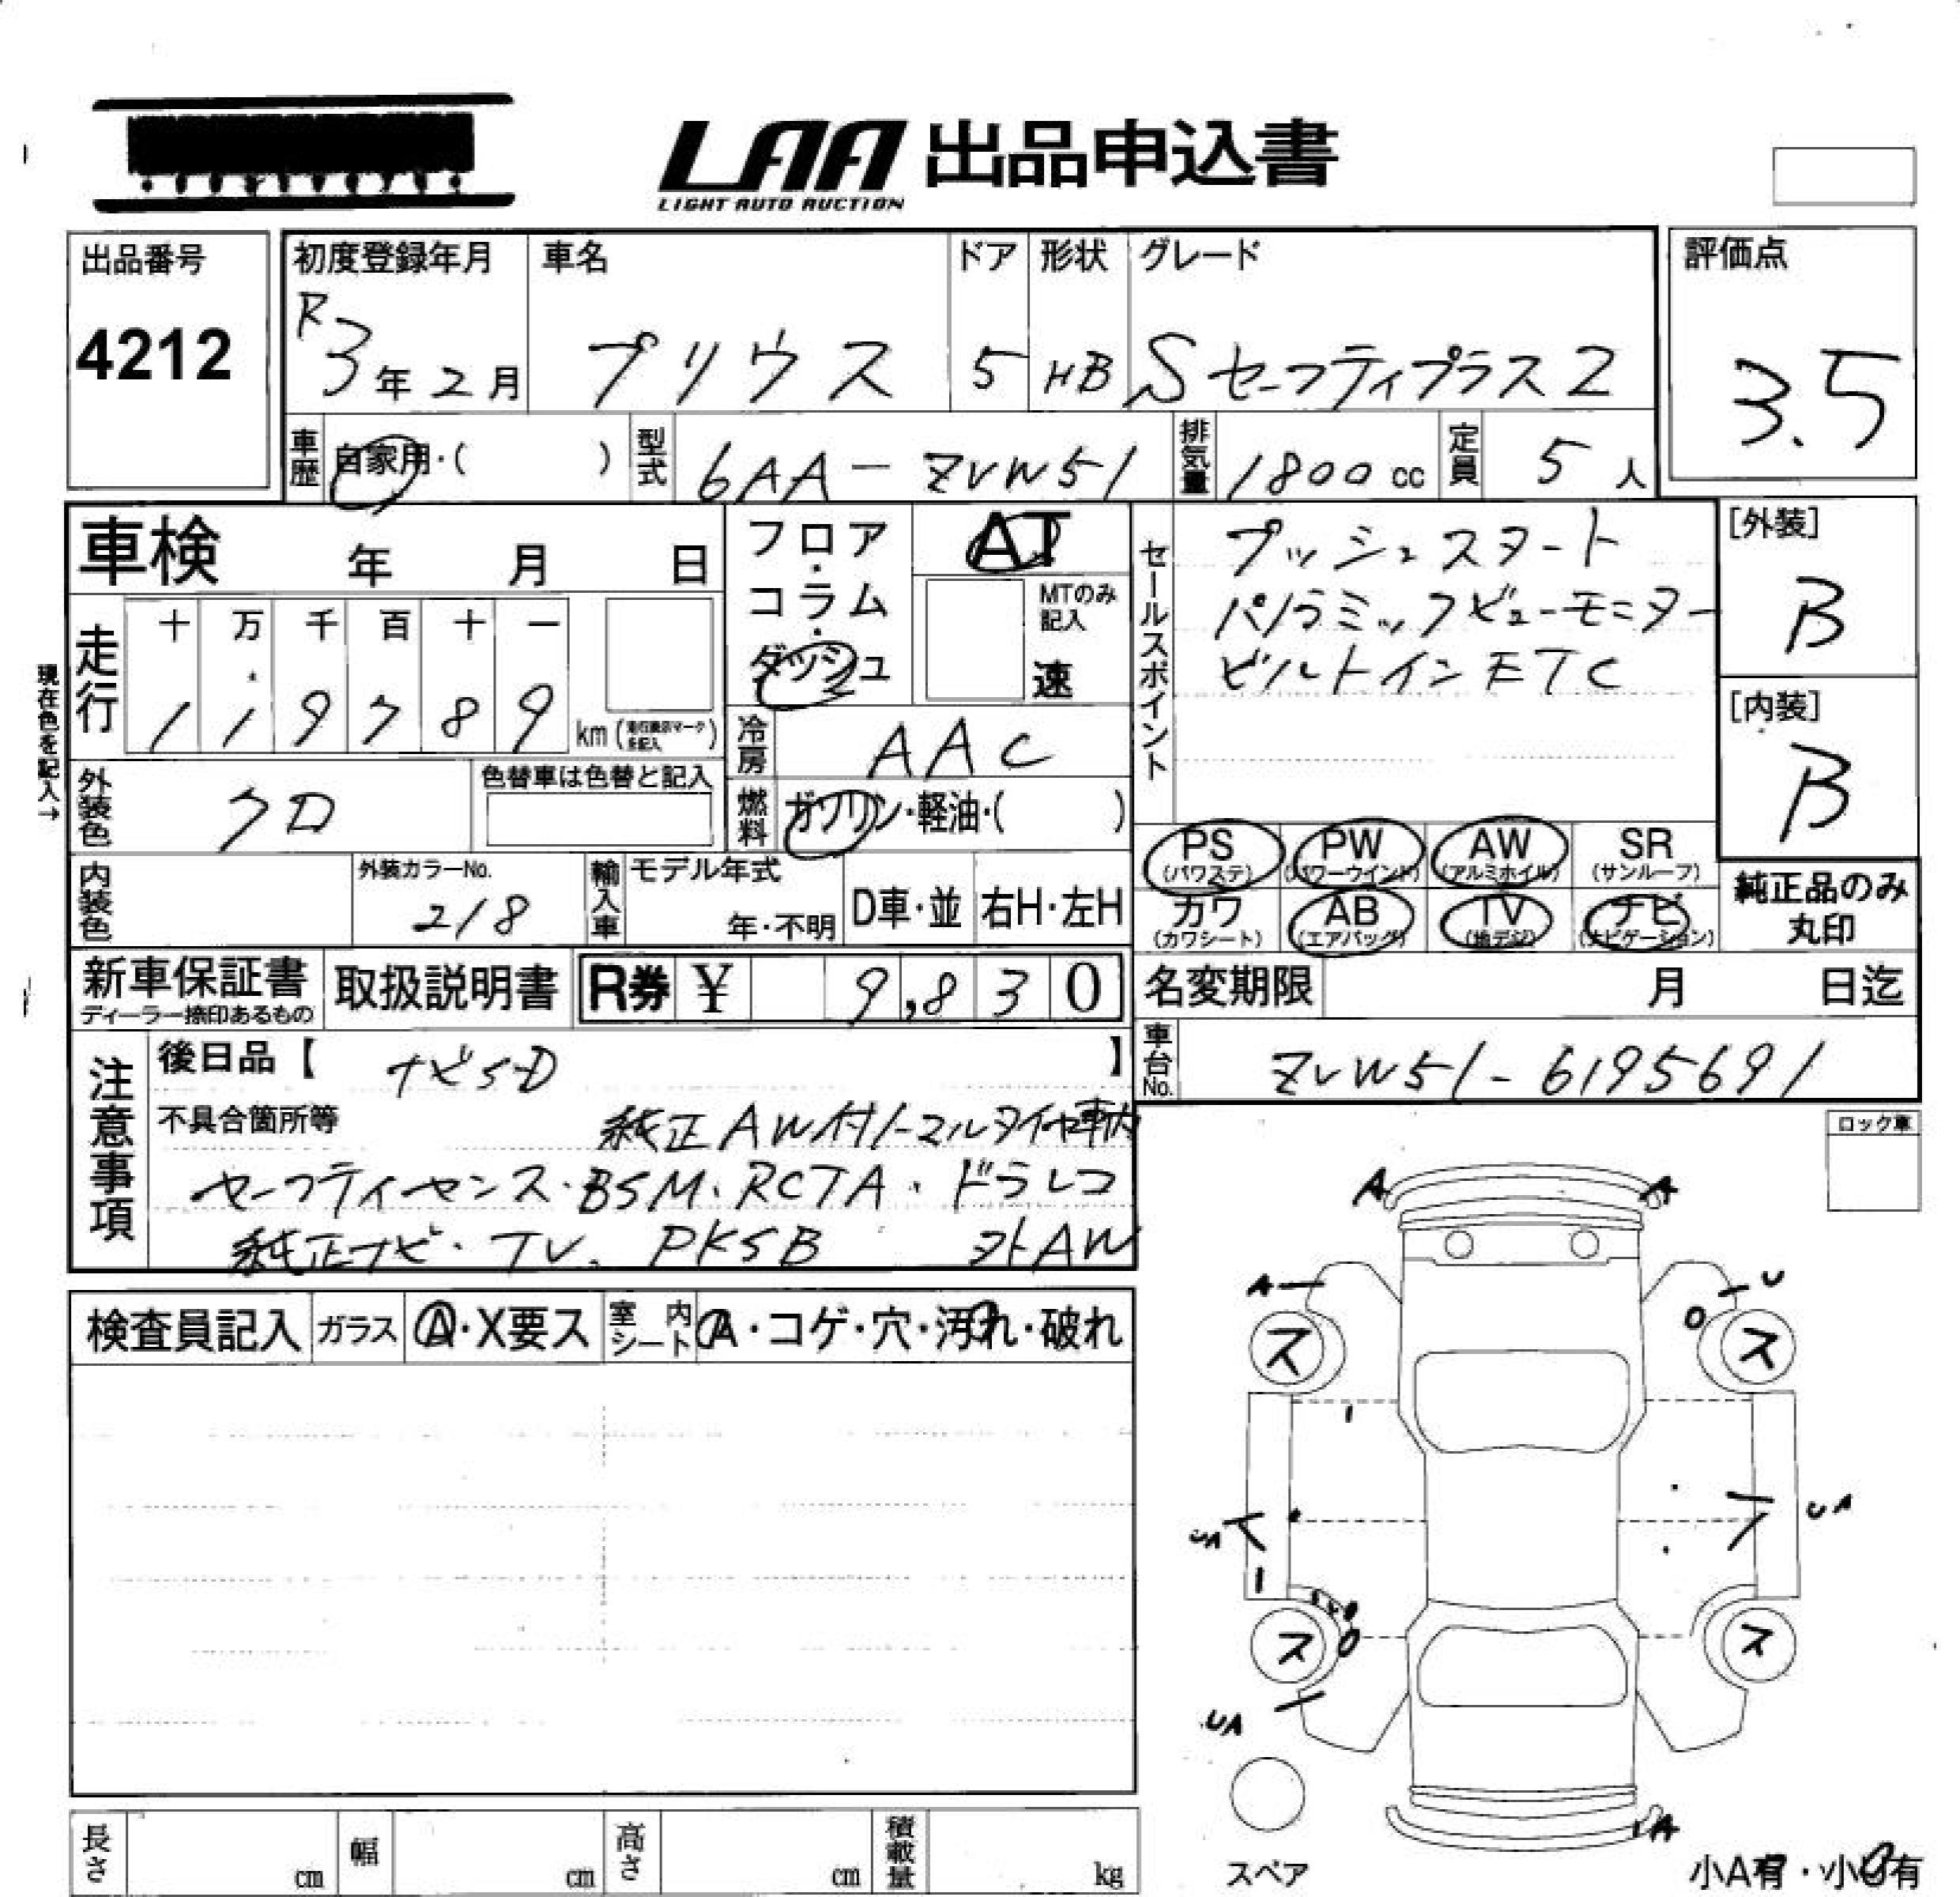 LAA 出品申込書
LIGHT AUTO AUCTION
出品番号
4212
初度登録年月
R3年2月
車名
プリウス
ドア
5
形状
HB
グレード
Sセーフティプラス2
評価点
3.5
車歴
自家用・( )
型式
6AA-ZVW51
排気量
1800cc
定員
5人
車検 年 月 日
フロア・コラム・ダッシュ
AT
MTのみ記入
速
セールスポイント
プッシュスタート
パノラミックビューモニター
ビルトインETC
[外装]
B
[内装]
B
現在色を記入→
走行
十 万 千 百 十 一
1 1 9 7 8 9
km
冷房
AAC
外装色
クロ
色替車は色替と記入
燃料
ガソリン・軽油・( )
PS (パワステ)
PW (パワーウインド)
AW (アルミホイル)
SR (サンルーフ)
カワ (カワシート)
AB (エアバッグ)
TV (地デジ)
ナビ (ナビゲーション)
純正品のみ
丸印
内装色
外装カラーNo.
218
輸入車
モデル年式
年・不明
D車・並
右H・左H
新車保証書
ディーラー捺印あるもの
取扱説明書
R券 ¥ 9,830
名変期限 月 日迄
車台No.
ZVW51-6195691
注意事項
後日品【 ナビSD 】
不具合箇所等
純正AW付ノーマルタイヤ車内
セーフティセンス・BSM・RCTA・ドラレコ
純正ナビ・TV、PKSB 外AW
ロック車
検査員記入
ガラス
A・X要ス
室内シート
A・コゲ・穴・汚れ・破れ
A A
A U
ス ス
UA UA
ス ス
UA
A
スペア
小A有・小U有
長さ cm
幅 cm
高さ cm
積載量 kg